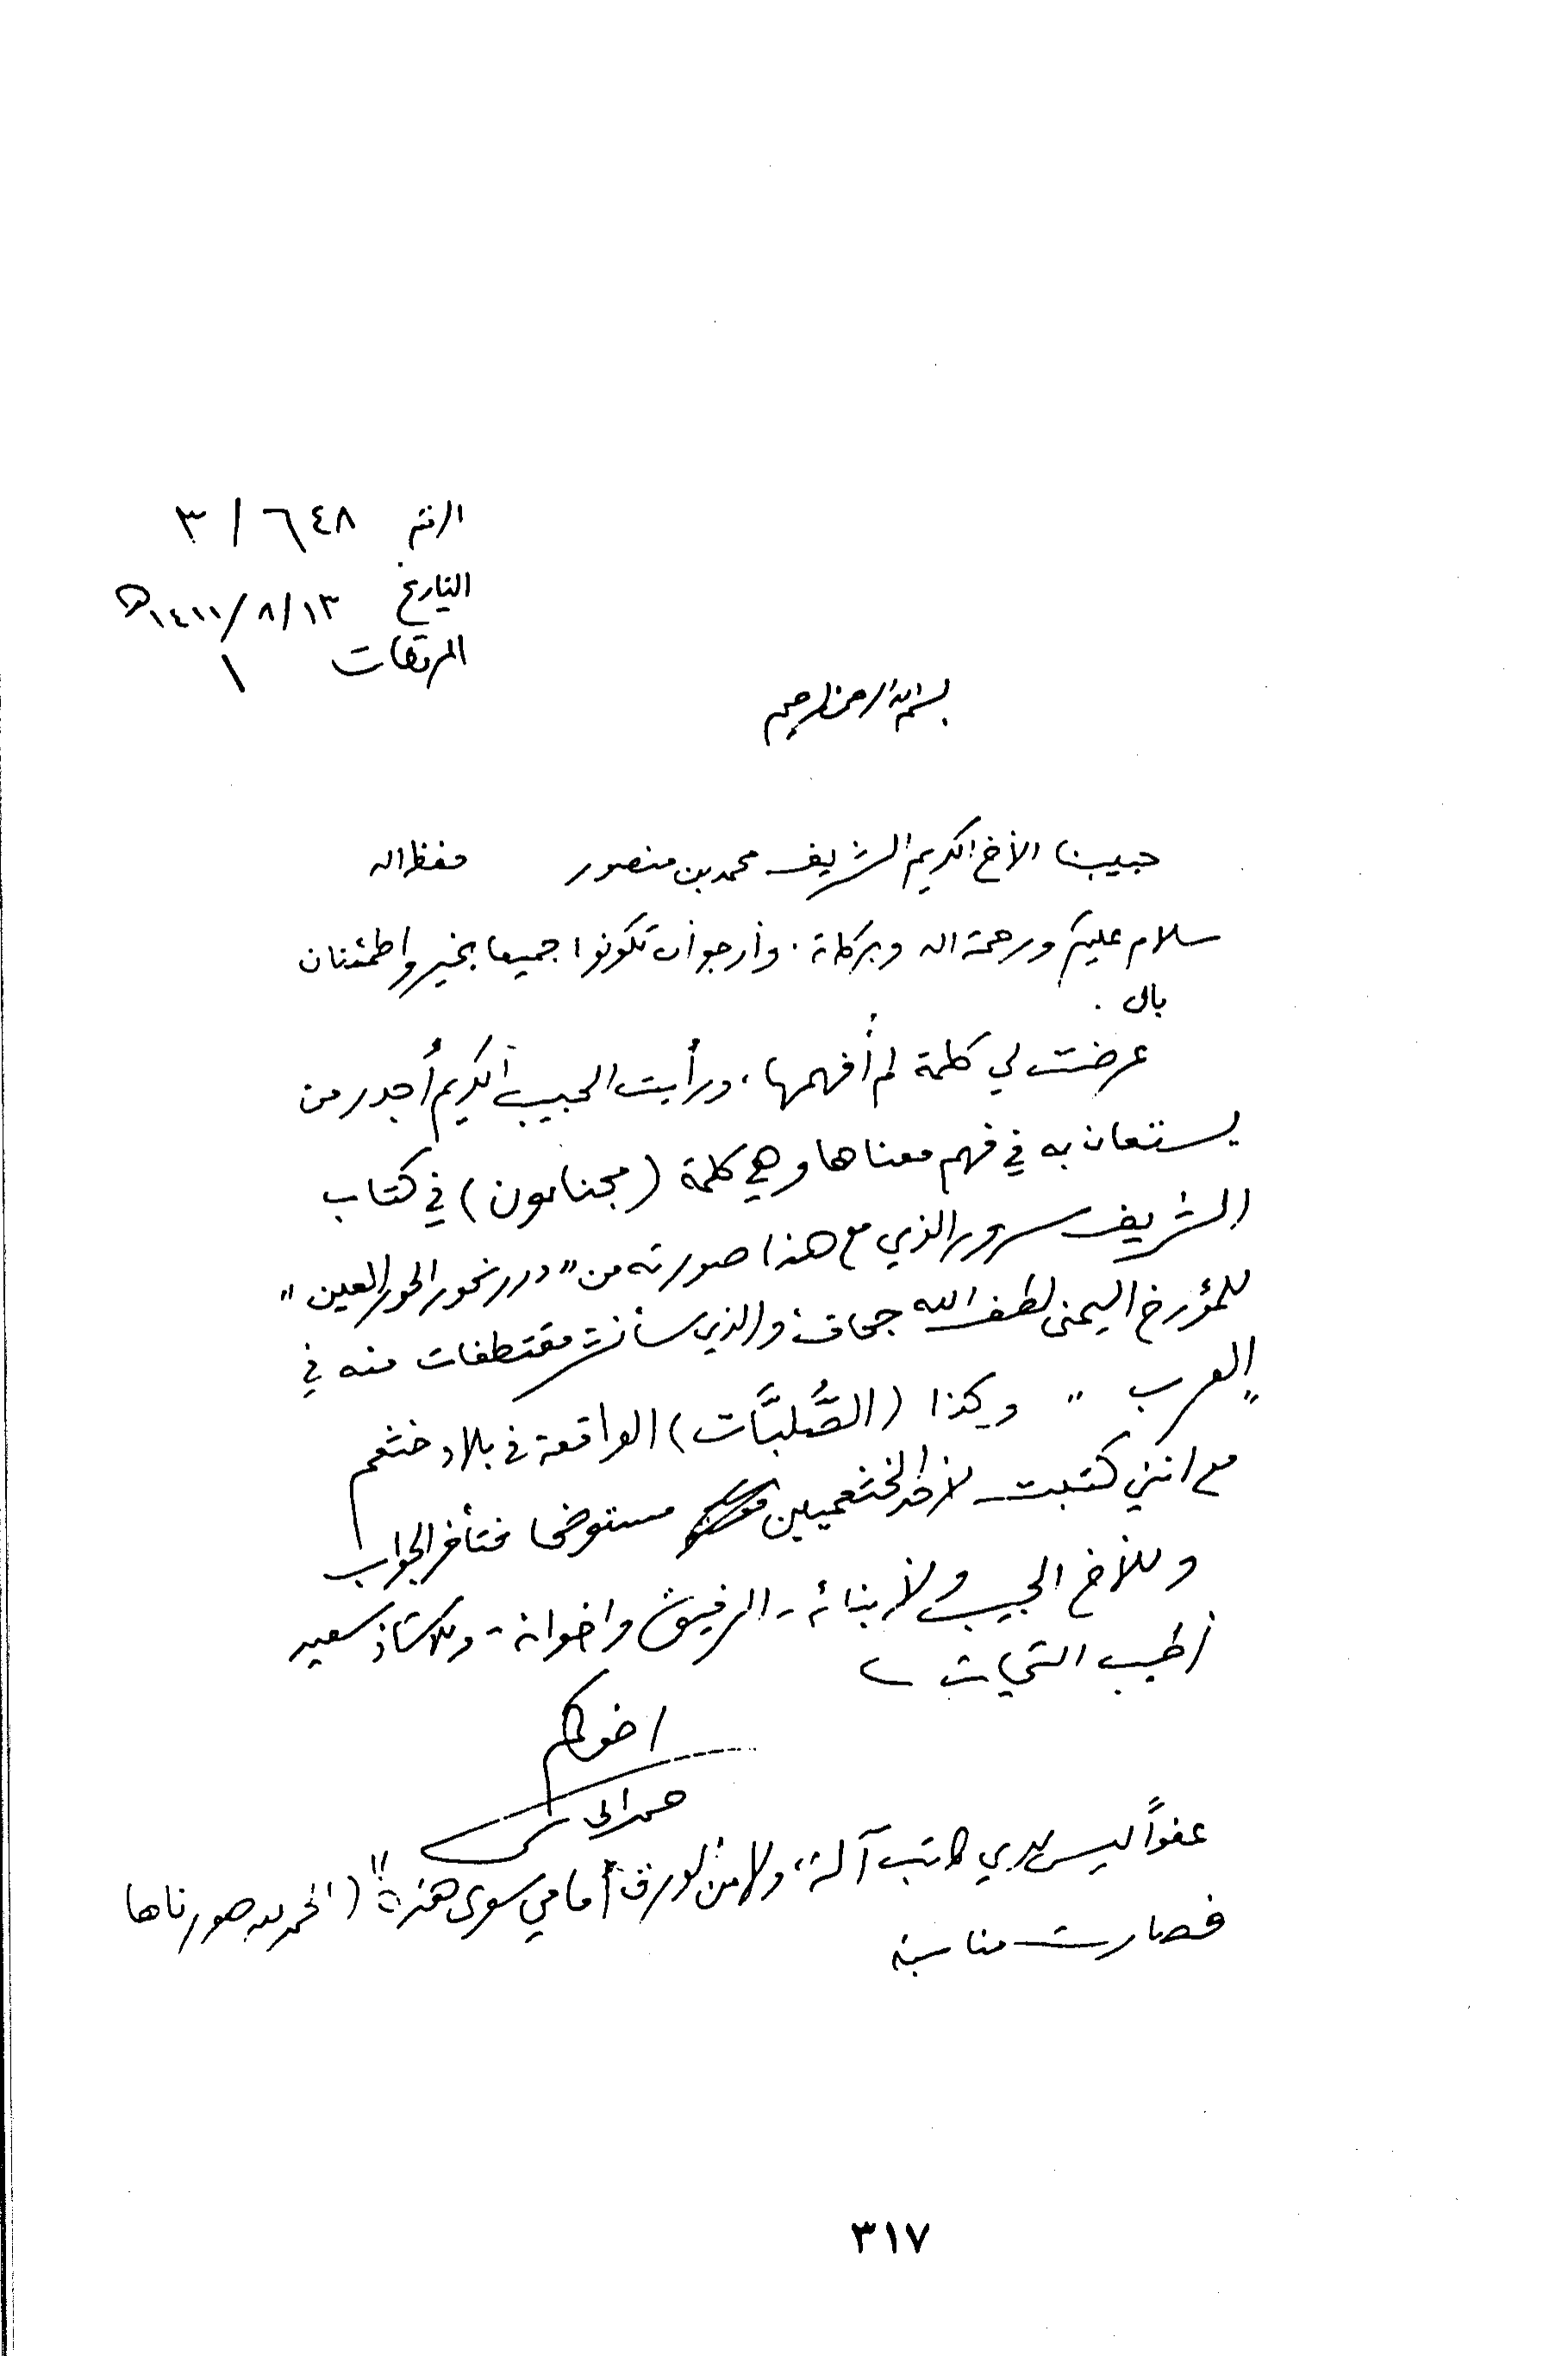 الرقم ٦٤٨ / ٣
التاريخ ١٣/ ٨/ ١٤١١هـ
المرفقات ١
بسم الله الرحمن الرحيم
حبيبنا الأخ الكريم الشريف محمد بن منصور حفظه الله
سلام عليكم ورحمة الله وبركاته. وأرجو أن تكونوا جميعا بخير واطمئنان
بال .
عرضت لي كلمة لم أفهمها، ورأيت الحبيب الكريم أجدر من
يستعان به في فهم معناها وهي كلمة ( ) في كتاب
الشريف سرور الذي مع هذا صورته من "درر نحور الحور العين"
للمؤرخ اليمني لطف الله جحاف والذي سأنشر مقتطفات منه في
"العرب" وكذا (الصُّلبَّات) الواقعة في بلاد خثعم
مع انني كتبت لأحد الخثعميين مستوضحا فتأخر الجواب
وللأخ الحبيب ولأبنائه - الرفيق واخوانه - وللأستاذ سعيد
أطيب التحيات
اخوكم
حمد الجاسر
عفواً ليس لدي كاتب آلة، ولا من الورق أمامي سوى هذه!! (الحمد لله صورناها
فصارت مناسبة
٣١٧